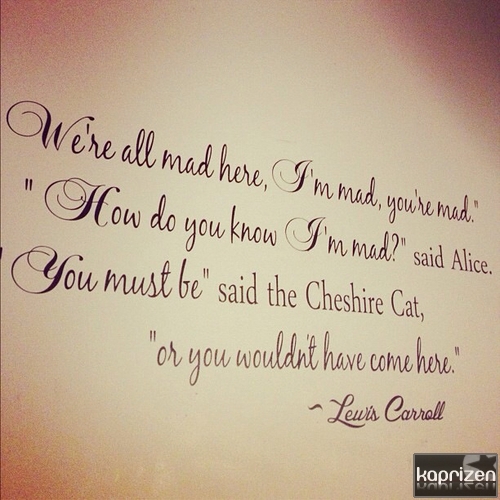 We're all mad here, I'm mad, you're mad."
" How do you know I'm mad?" said Alice.
" You must be" said the Cheshire Cat,
"or you wouldn't have come here."
~ Lewis Carroll
kaprizen